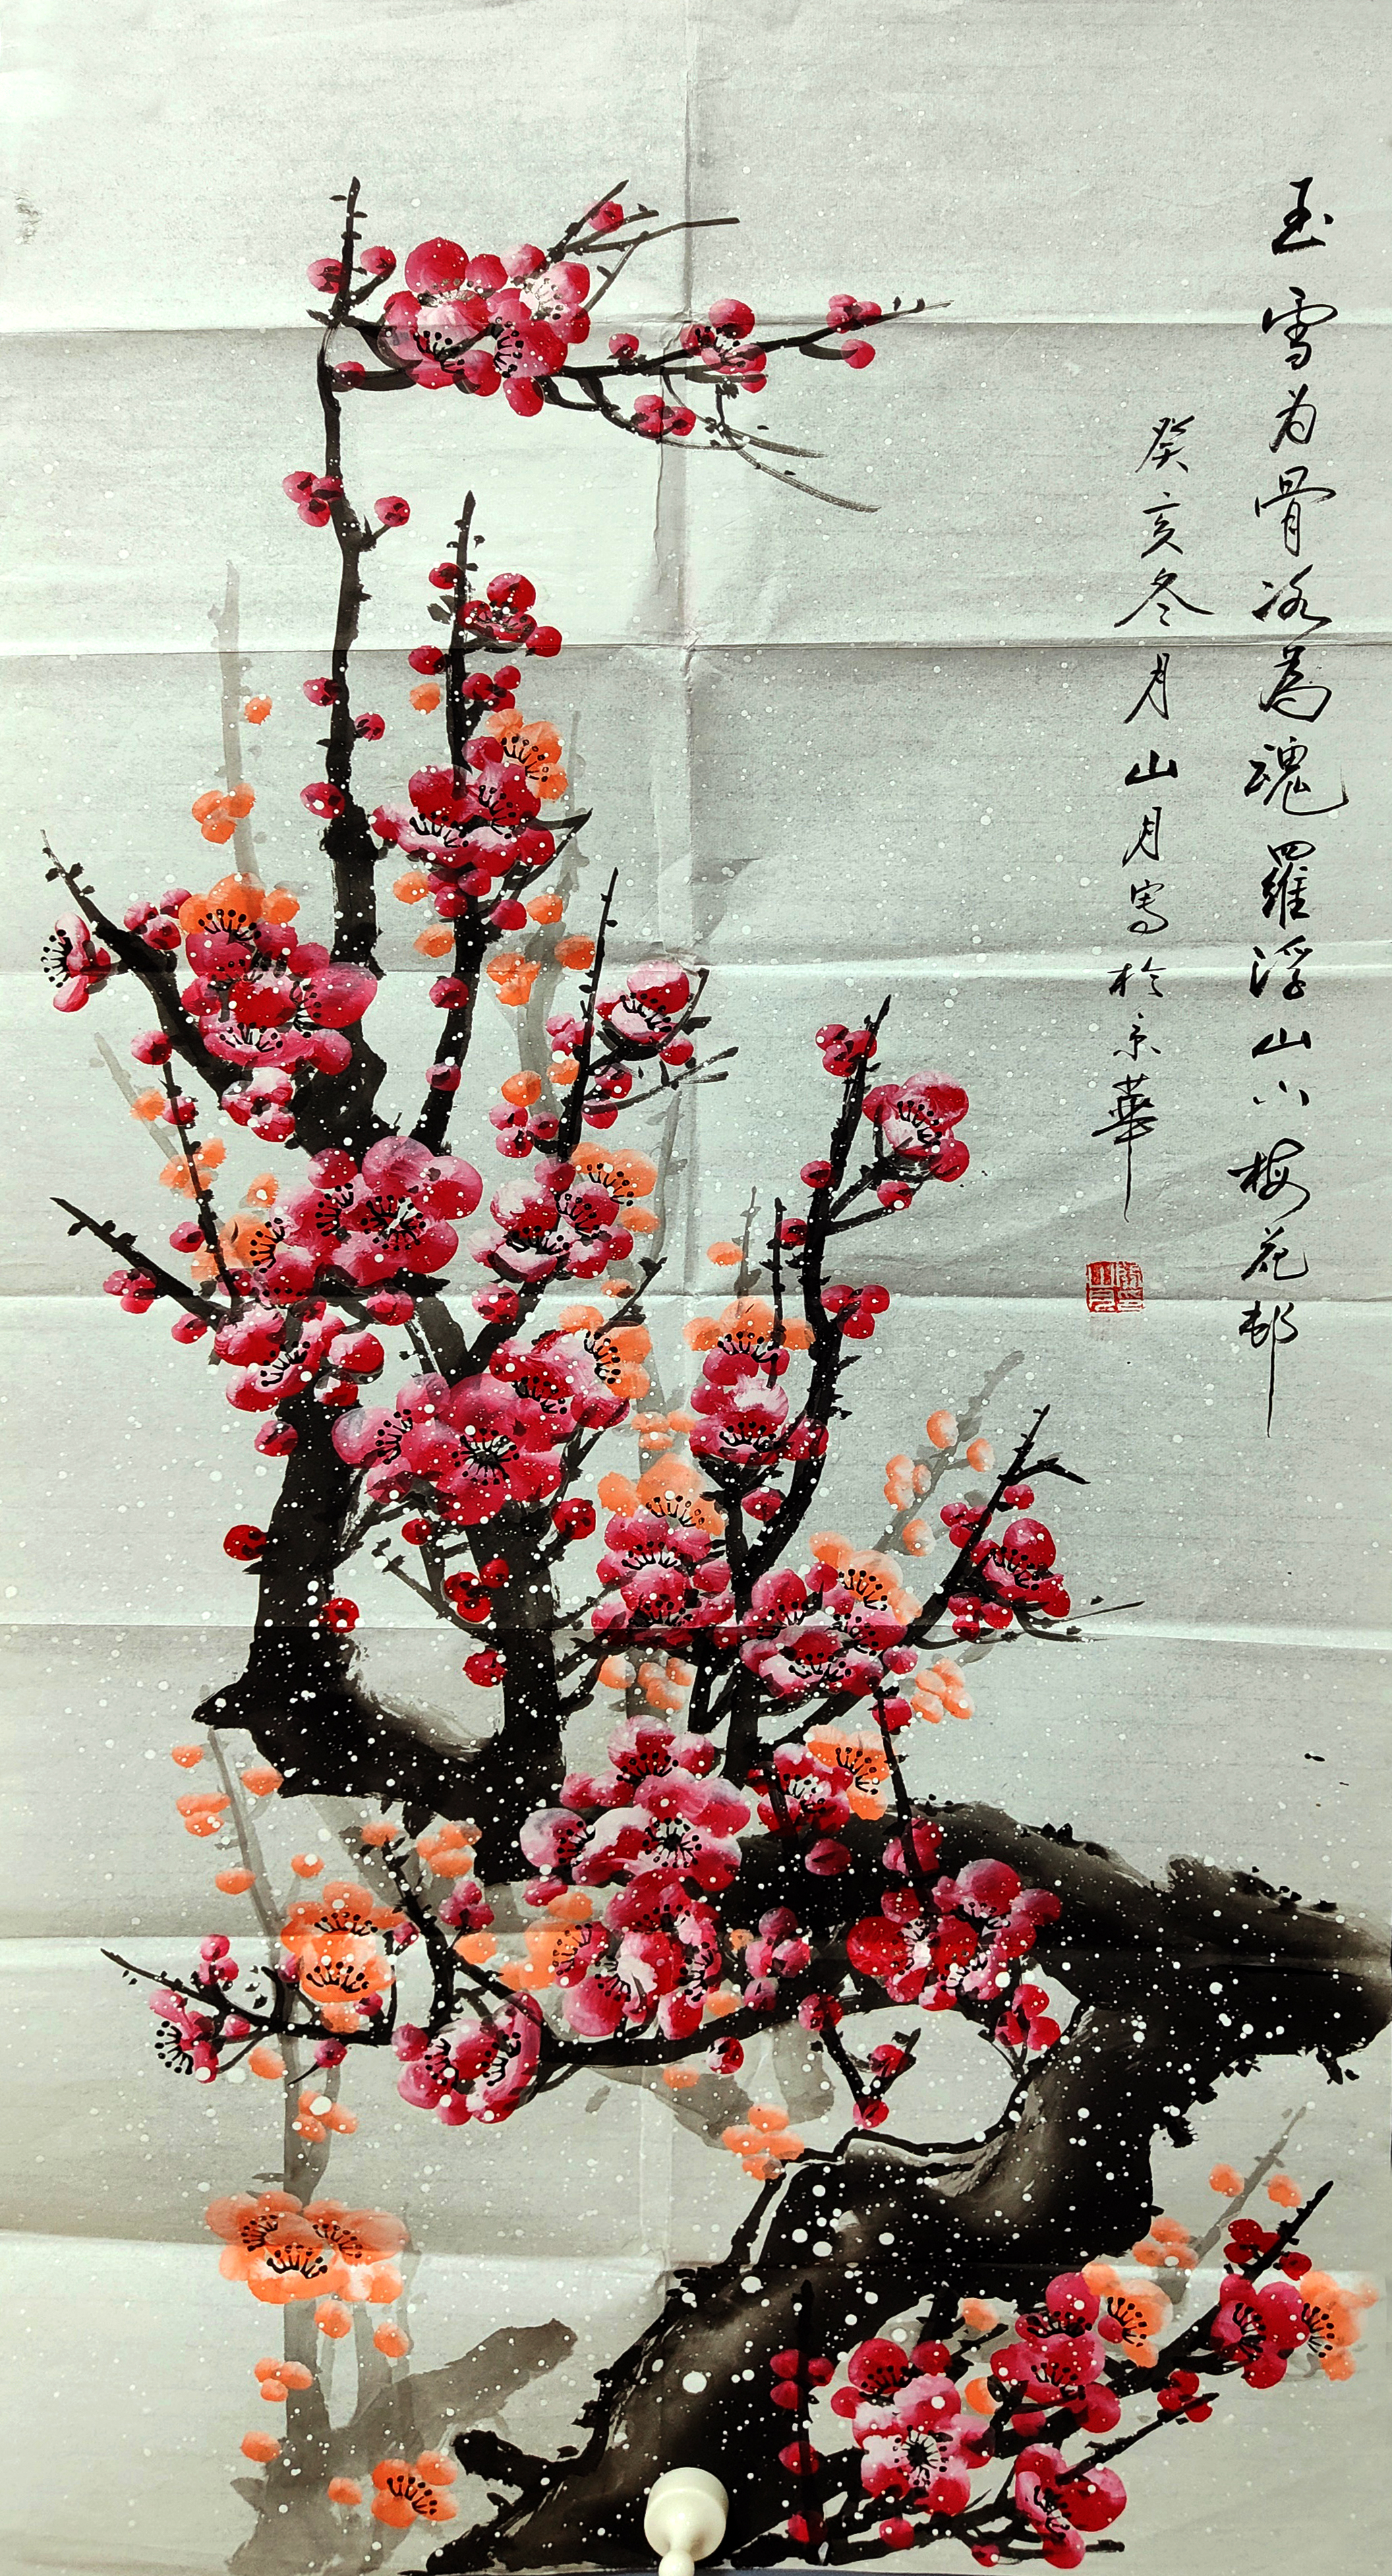 玉雪为骨冰為魂羅浮山下梅花邨
癸亥冬月山月寫於京華